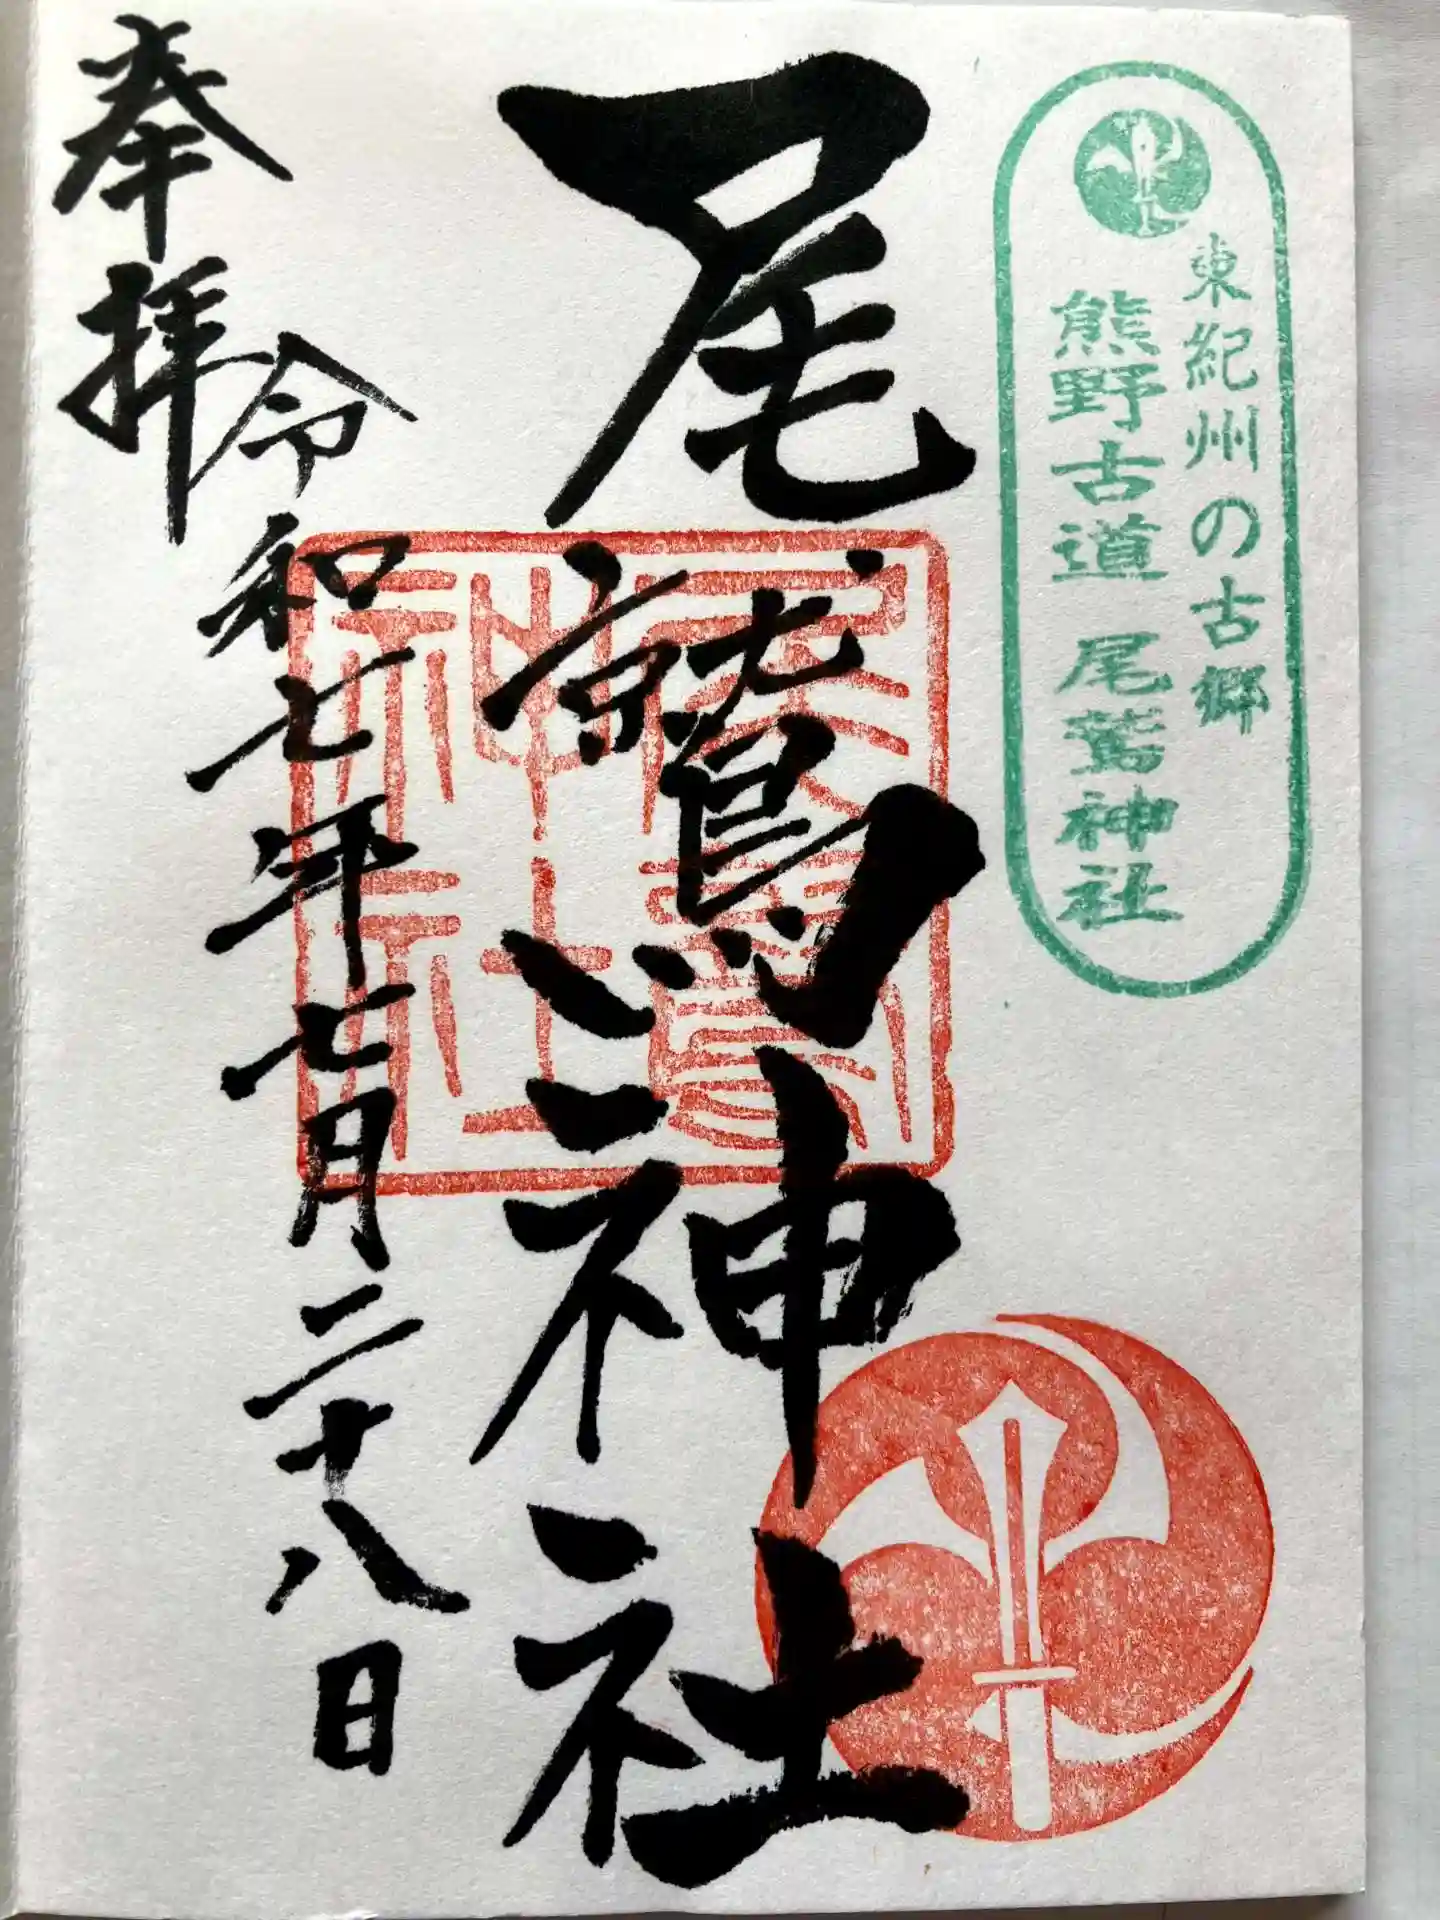 東紀州の古郷
熊野古道 尾鷲神社
尾鷲神社
尾鷲神社
令和七年七月二十八日
奉拝